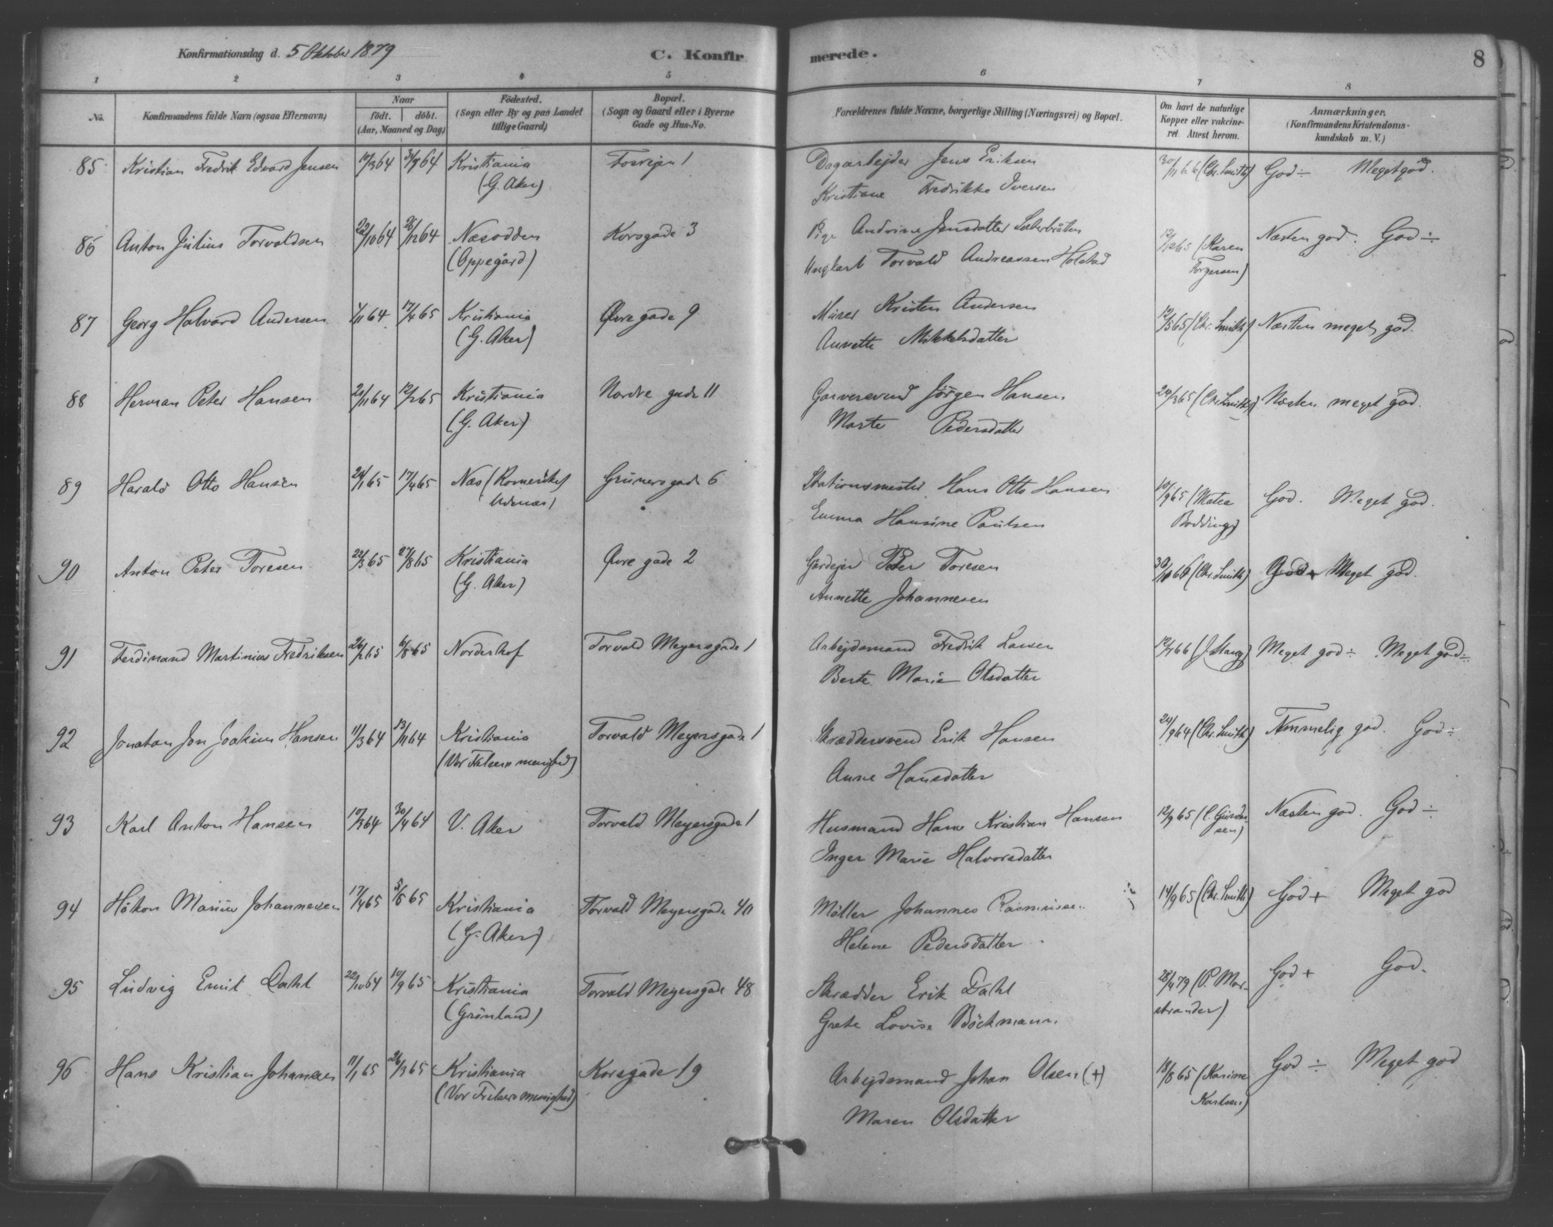 Konfirmationsdag d. 5 Oktober 1879 C. Konfirmerede. 8
1 2 3 4 5 6 7 8
No. Konfirmandens fulde Navn (ogsaa Efternavn) Naar født. døbt. (Aar, Maaned og Dag) Fødested. (Sogn eller By og paa Landet tillige Gaard) Bopæl. (Sogn og Gaard eller i Byerne Gade og Hus-No. Forældrenes fulde Navne, borgerlige Stilling (Næringsvei) og Bopæl. Om havt de naturlige Kopper eller vaccineret. Attest herom. Anmærkninger. (Konfirmandens Kristendomskundskab m. V.)
85 Kristian Fredrik Edvard Jensen Kristiania Dagarbejder Jens Eriksen (Chr. Smith) God ÷ Meget god.
(G. Aker) Kristiane Fredrikke Iversen
86 Anton Julius Torvaldsen 22/10 64 26/12 64 Næsodden Korsgade 3 Pige Andrine Jensdatter (Karen Næsten god. God ÷
(Oppegård) Ungkarl Torvald Andreassen Holstad Torgersen)
87 Georg Halvard Andersen 17/4 65 Kristiania Øvre gade 9 Murer Kristen Andersen (Chr. Smith) Næsten meget god.
(G. Aker) Annette Mikkelsdatter
88 Herman Peter Hansen 21/11 64 12/2 65 Kristiania Nordre gade 11 Garversvend Jörgen Hansen (Chr. Smith) Næsten meget god.
(G. Aker) Marte Pedersdatter
89 Harald Otto Hansen 24/1 65 17/4 65 Næs (Romerike Grünersgade 6 Stationsmester Hans Otto Hansen God. Meget god.
Udenæs) Emma Hansine Paulsen
90 Anton Peter Toresen 22/3 65 27/8 65 Kristiania Øvre gade 2 Gårdejer Peter Toresen (Chr. Smith) God + Meget god.
(G. Aker) Annette Johannesen
91 Ferdinand Martinius Fredriksen 24/2 65 6/8 65 Norderhof Torvald Meyersgade 1 Arbejdsmand Fredrik Larsen Meget god ÷ Meget god ÷
Berte Marie Olsdatter
92 Jonatan Jon Joakim Hansen 11/3 64 13/11 64 Kristiania Torvald Meyersgade 1 Skræddersvend Erik Hansen 24/9 64 (Chr. Smith) Temmelig god. God ÷
(Vor Frelsers menighed) Anne Hansdatter
93 Karl Anton Hansen 30/4 64 V. Aker Torvald Meyersgade 1 Husmand Hans Kristian Hansen Næsten god. God ÷
Inger Marie Halvorsdatter
94 Håkon Marius Johannesen 17/4 65 5/8 65 Kristiania Torvald Meyersgade 40 Møller Johannes Rasmussen 14/9 65 (Chr. Smith) God + Meget god
(G. Aker) Helene Pedersdatter
95 Ludvig Emil Dahl 22/10 64 17/9 65 Kristiania Torvald Meyersgade 48 Skrædder Erik Dahl 28/4 79 (P. Mar- God + God.
(Grønland) Grete Lovise Böckmann strander)
96 Hans Kristian Johansen 11/1 65 26/3 65 Kristiania Korsgade 19 Arbejdsmand Johan Olsen (+) (Karine God ÷ Meget god
(Vor Frelsers menighed) Maren Olsdatter Karlsen)